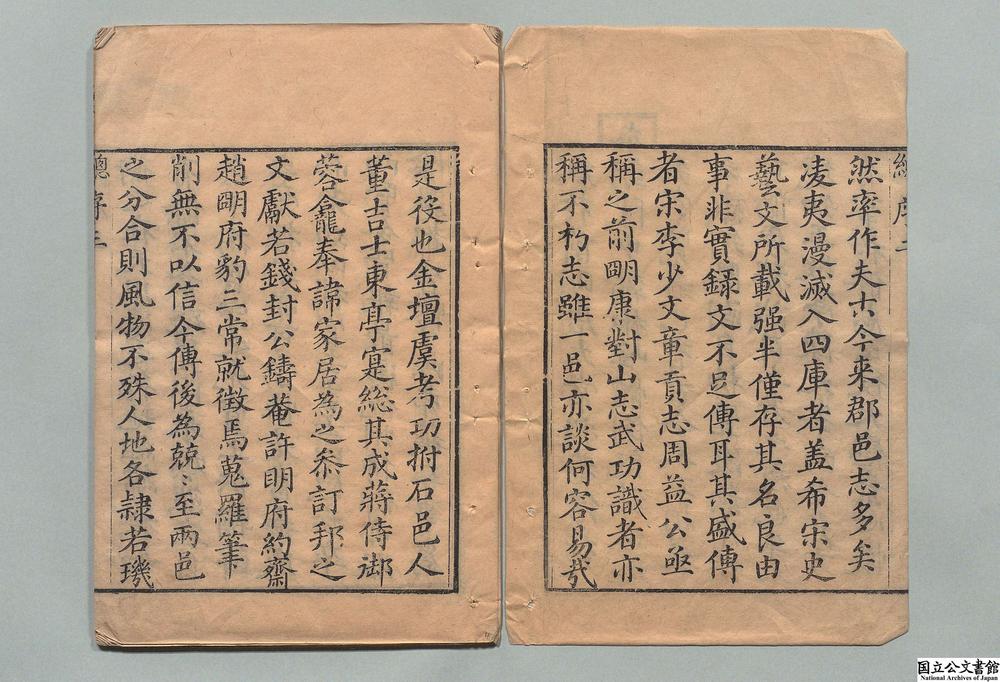 然率作夫古今來郡邑志多矣
淩夷漫滅入四庫者盖希宋史
藝文所載强半僅存其名良由
事非實録文不足傳耳其盛傳
者宋李少文章貢志周益公亟
稱之前明康對山志武功識者亦
稱不朽志雖一邑亦談何容易㢤
是役也金壇虞考功拊石邑人
董吉士東亭寔総其成蔣侍御
蓉龕奉諱家居為之叅訂邦之
文獻若錢封公鑄菴許明府約齋
趙明府豹三常就徴焉蒐羅筆
削無不以信今傳後為兢〻至兩邑
之分合則風物不殊人地各隷若璣
總序二
国立公文書館
National Archives of Japan